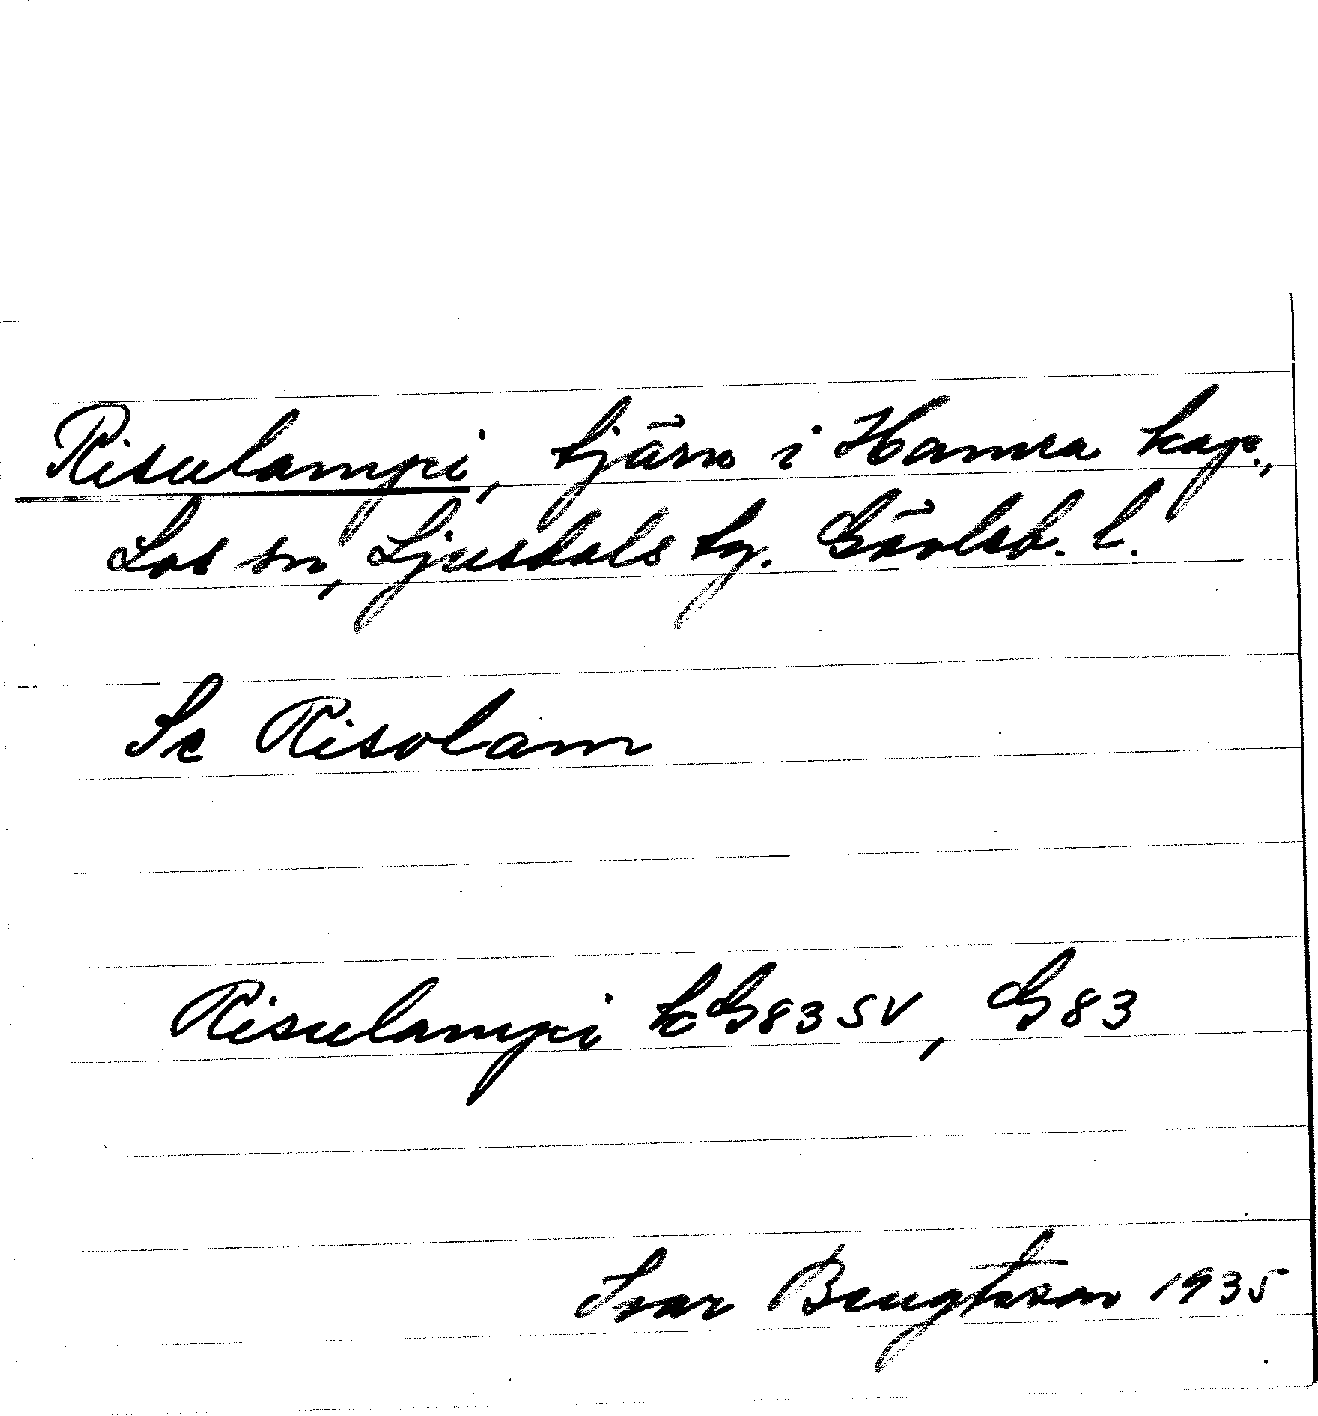 Risulampi, tjärn i Hamra kap.,
Los sn, Ljusdals tg. Gävleb. l.
Se Risolam
Risulampi kG83SV, G83
Ivar Bengtsson 1935